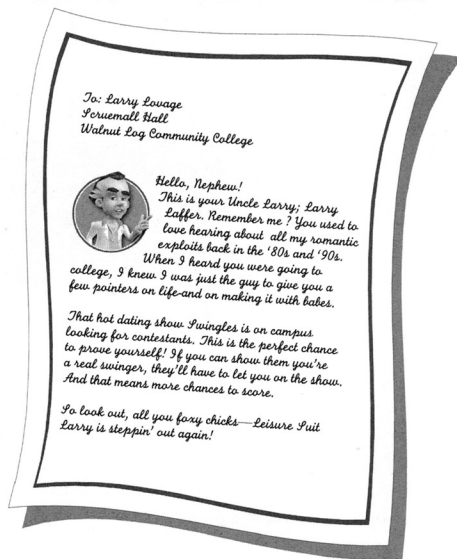 To: Larry Lovage
Scruemall Hall
Walnut Log Community College
Hello, Nephew!
This is your Uncle Larry; Larry
Laffer. Remember me ? You used to
love hearing about all my romantic
exploits back in the '80s and '90s.
When I heard you were going to
college, I knew I was just the guy to give you a
few pointers on life-and on making it with babes.
That hot dating show Swingles is on campus
looking for contestants. This is the perfect chance
to prove yourself! If you can show them you're
a real swinger, they'll have to let you on the show.
And that means more chances to score.
So look out, all you foxy chicks—Leisure Suit
Larry is steppin' out again!